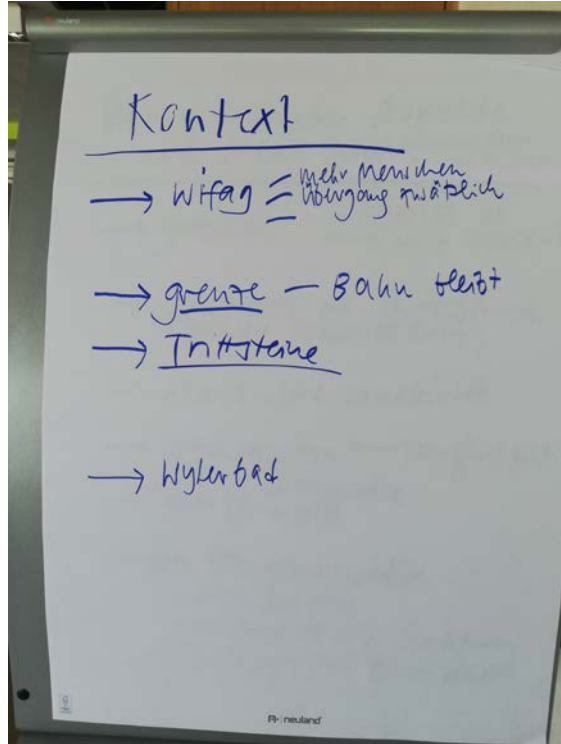 neuland
Kontext
→ Wifag = mehr Menschen
Übergang zusätzlich
→ grenze — Bahn bleibt
→ Trittsteine
→ Wylerbad
neuland